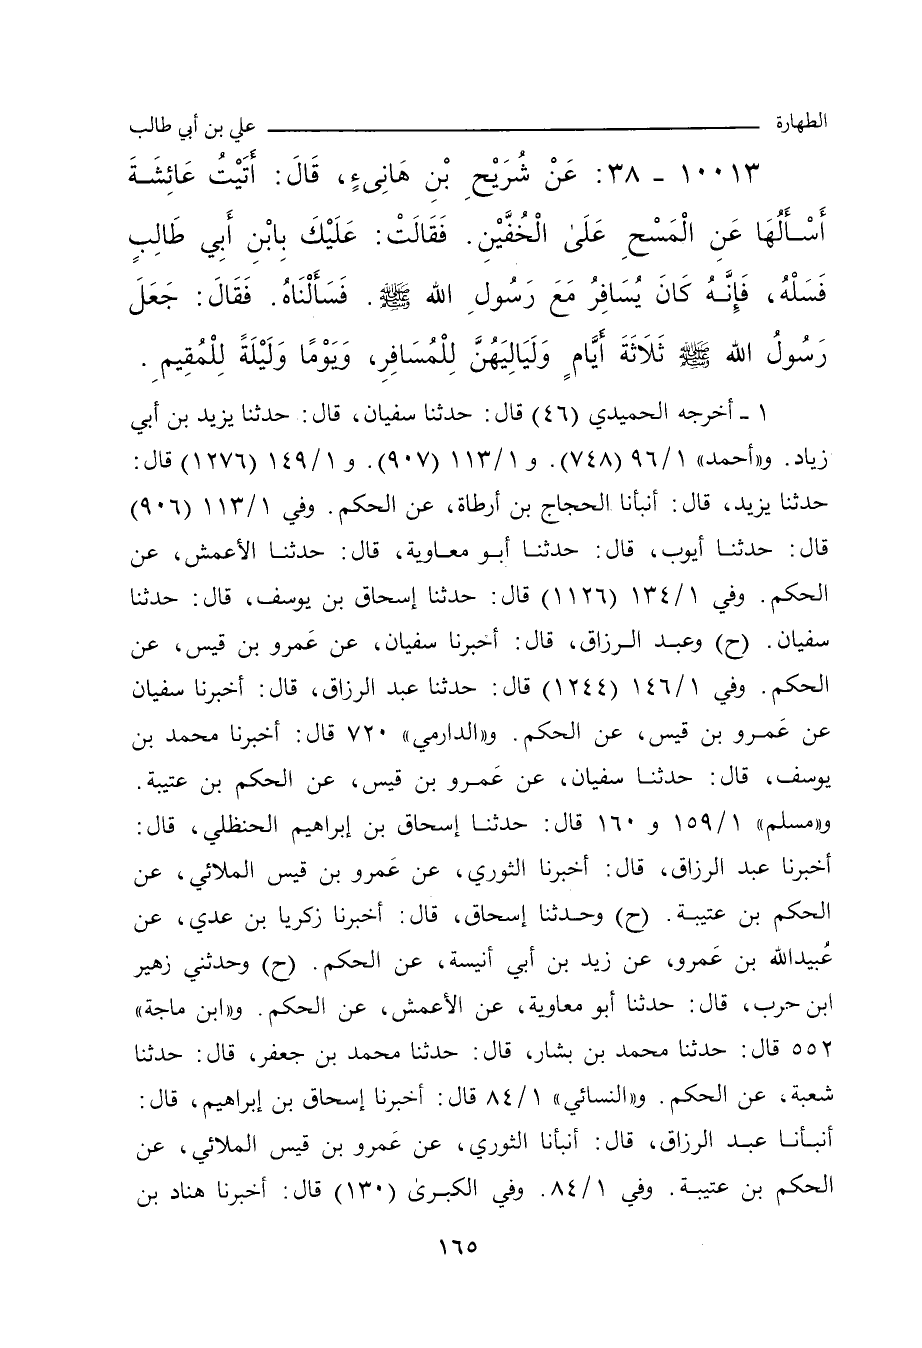 الطهارة ــــــــــــــــــــ علي بن أبي طالب
١٠٠١٣ ـ ٣٨: عَنْ شُرَيْحِ بْنِ هَانِىءٍ، قَالَ: أَتَيْتُ عَائِشَةَ
أَسْأَلُهَا عَنِ الْمَسْحِ عَلَىٰ الْخُفَّيْنِ. فَقَالَتْ: عَلَيْكَ بِابْنِ أَبِي طَالِبٍ
فَسَلْهُ، فَإِنَّهُ كَانَ يُسَافِرُ مَعَ رَسُولِ الله ﷺ. فَسَأَلْنَاهُ. فَقَالَ: جَعَلَ
رَسُولُ الله ﷺ ثَلَاثَةَ أَيَّامٍ وَلَيَالِيَهُنَّ لِلْمُسَافِرِ، وَيَوْمًا وَلَيْلَةً لِلْمُقِيمِ.
١ ـ أخرجه الحميدي (٤٦) قال: حدثنا سفيان، قال: حدثنا يزيد بن أبي
زياد. و«أحمد» ٩٦/١ (٧٤٨). و ١١٣/١ (٩٠٧). و ١٤٩/١ (١٢٧٦) قال:
حدثنا يزيد، قال: أنبأنا الحجاج بن أرطاة، عن الحكم. وفي ١١٣/١ (٩٠٦)
قال: حدثنا أيوب، قال: حدثنا أبو معاوية، قال: حدثنا الأعمش، عن
الحكم. وفي ١٣٤/١ (١١٢٦) قال: حدثنا إسحاق بن يوسف، قال: حدثنا
سفيان. (ح) وعبد الرزاق، قال: أخبرنا سفيان، عن عَمرو بن قيس، عن
الحكم. وفي ١٤٦/١ (١٢٤٤) قال: حدثنا عبد الرزاق، قال: أخبرنا سفيان
عن عَمرو بن قيس، عن الحكم. و«الدارمي» ٧٢٠ قال: أخبرنا محمد بن
يوسف، قال: حدثنا سفيان، عن عَمرو بن قيس، عن الحكم بن عتيبة.
و«مسلم» ١٥٩/١ و ١٦٠ قال: حدثنا إسحاق بن إبراهيم الحنظلي، قال:
أخبرنا عبد الرزاق، قال: أخبرنا الثوري، عن عَمرو بن قيس الملائي، عن
الحكم بن عتيبة. (ح) وحدثنا إسحاق، قال: أخبرنا زكريا بن عدي، عن
عُبيدالله بن عَمرو، عن زيد بن أبي أنيسة، عن الحكم. (ح) وحدثني زهير
ابن حرب، قال: حدثنا أبو معاوية، عن الأعمش، عن الحكم. و«ابن ماجة»
٥٥٢ قال: حدثنا محمد بن بشار، قال: حدثنا محمد بن جعفر، قال: حدثنا
شعبة، عن الحكم. و«النسائي» ٨٤/١ قال: أخبرنا إسحاق بن إبراهيم، قال:
أنبأنا عبد الرزاق، قال: أنبأنا الثوري، عن عَمرو بن قيس الملائي، عن
الحكم بن عتيبة. وفي ٨٤/١. وفي الكبرىٰ (١٣٠) قال: أخبرنا هناد بن
١٦٥